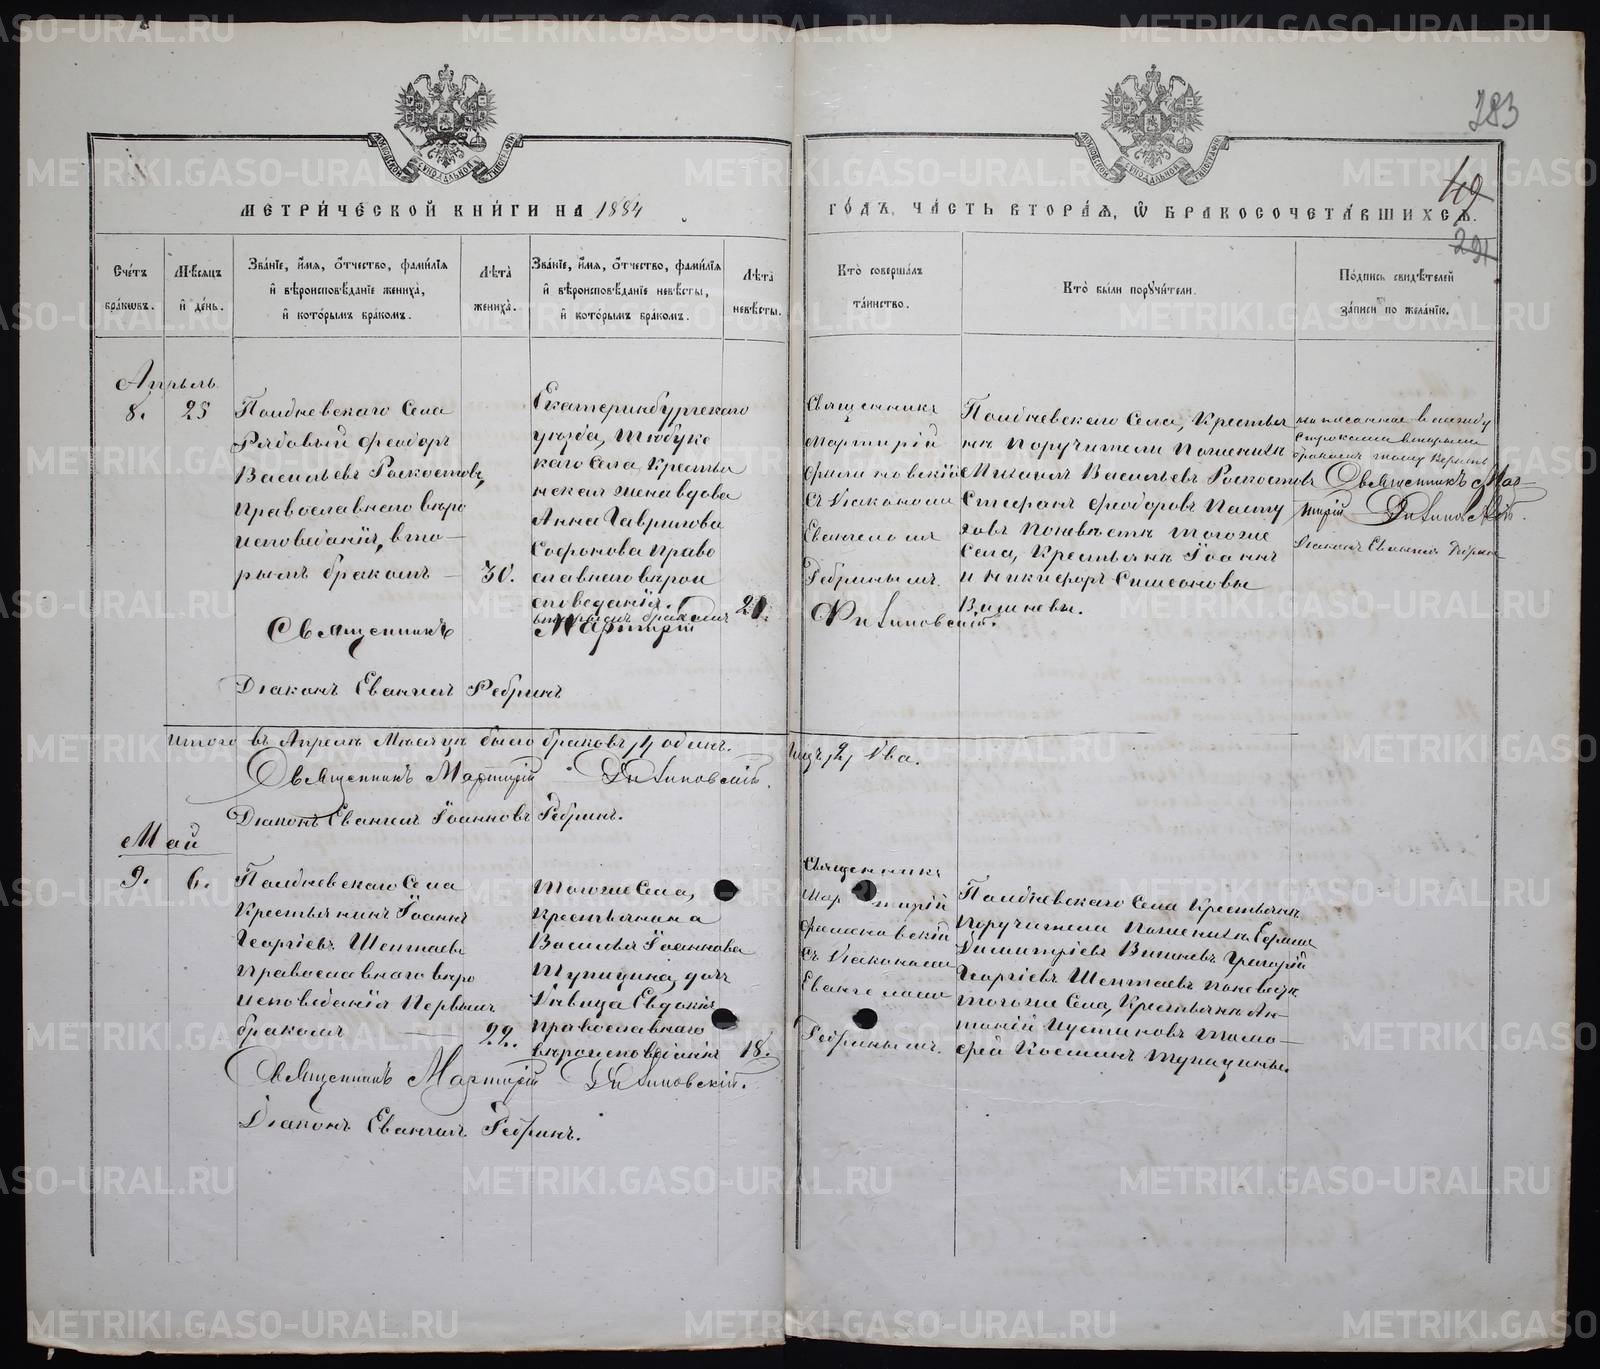 383
49
291
МЕТРИ́ЧЕСКОЙ КНИ́ГИ НА 1884
ГО́ДЪ, ЧА́СТЬ ВТОРА́Я, Ѡ БРАКОСОЧЕТА́ВШИХСЯ.
Сче́тъ бра́кѡвъ.
Мѣ́сяцъ и҆ де́нь.
Зва́нїе, и҆́мя, о҆́тчество, фами́лїя и҆ вѣроисповѣ́данїе жениха̀, и҆ кото́рымъ бра́комъ.
Лѣ́та жениха̀.
Зва́нїе, и҆́мя, о҆́тчество, фами́лїя и҆ вѣроисповѣ́данїе невѣ́сты, и҆ кото́рымъ бра́комъ.
Лѣ́та невѣ́сты.
Кто̀ соверша́лъ та́инство.
Кто̀ бы́ли поручи́тели.
По́дпись свидѣ́телей за́писи по жела́нїю.
Апрѣль
8.
25
Полдневскаго Села
Рядовый Феодоръ
Васильевъ Роскостовъ,
православнаго вѣро
исповѣданія, вто-
рымъ бракомъ
30.
Екатеринбургскаго
уѣзда, Тюбукс
каго Села Крестья
нская жена вдова
Анна Гаврилова
Софонова право
славнаго вѣрои
споведанія.
вторымъ бракомъ
Священникъ
Мартирій
Филиповскій
съ Діакономъ
Евангеломъ
Ребринымъ.
Полдневскаго Села, Крестья
не Поручители По женихѣ
Михаилъ Васильевъ Роскостовъ
Стефанъ Феодоровъ Пасту
ховъ По невѣстѣ тогоже
Села, Крестьяне Іоаннъ
и Никифоръ Симеоновы
Вишневы.
написанное в между
строками вторымъ
бракомъ тому верить
Священникъ Мар-
тирій Филиповскій.
Діаконъ Евангелъ Ребринъ
Священникъ Мартирій Филиповскій.
Діаконъ Евангелъ Ребринъ
Итого въ Апрелѣ Мѣсяцѣ было браковъ /1/ одинъ. лицъ /2/ два.
Священникъ Мартирій Филиповскій.
Діаконъ Евангелъ Іоанновъ Ребринъ.
Май
9.
6.
Полдневскаго Села
Крестьянинъ Іоаннъ
Георгіевъ Шептаевъ
православнаго вѣро
исповѣданія Первымъ
бракомъ
22.
Тогоже Села,
Крестьянина
Василья Іоаннова
Тупицина, дочь
Дѣвица Евдокія
православнаго
вѣроисповѣданія
18.
Священникъ
Мартирій
Филиповскій
съ Діакономъ
Евангеломъ
Ребринымъ.
Полдневскаго Села Крестьяне
Поручители По женихѣ
Димитріевъ Вишневъ Григорій
Георгіевъ Шептаевъ по невѣстѣ
тогоже Села, Крестьяне Ан-
тоній Иустиновъ Тимо-
фей Космины Тупицины.
Священникъ Мартирій Филиповскій.
Діаконъ Евангелъ Ребринъ.
METRIKI.GASO-URAL.RU